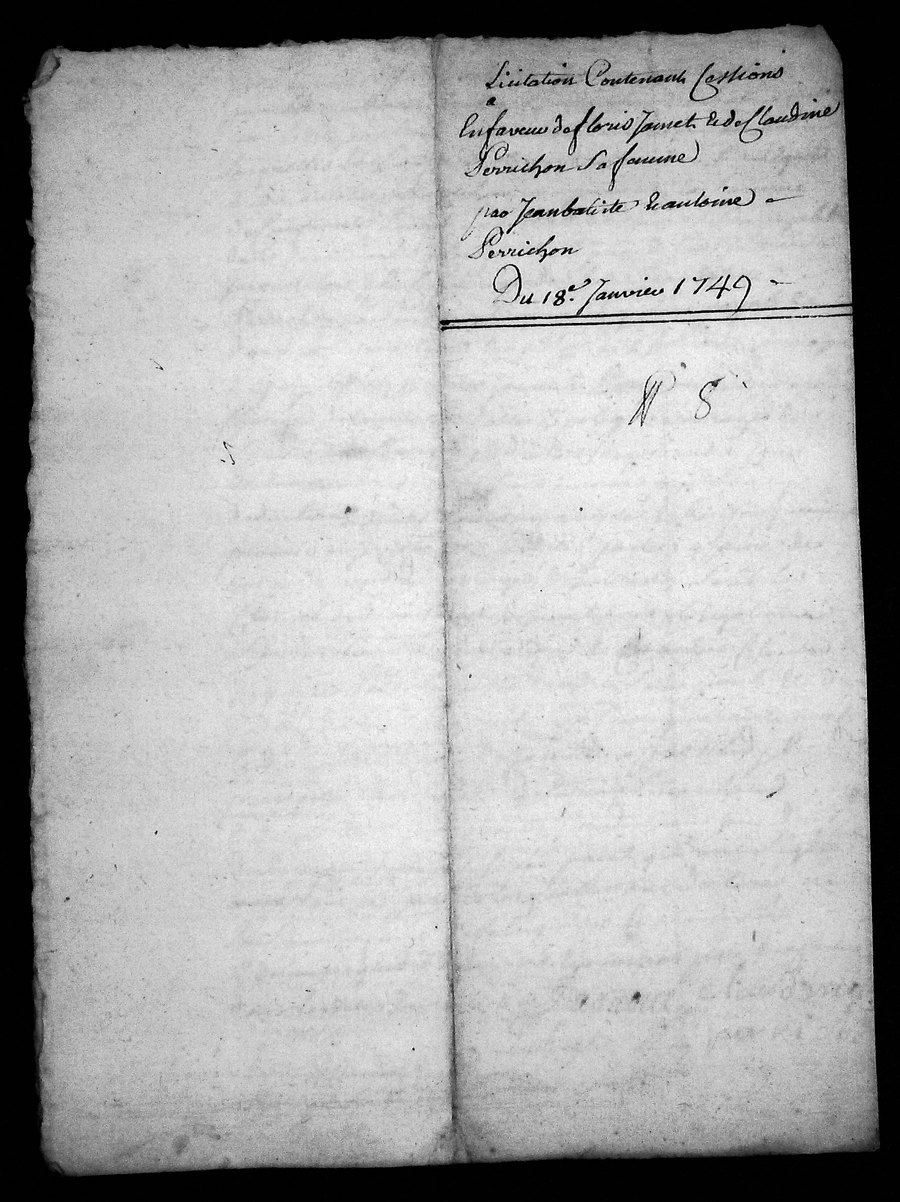 Licitation Contenant Cessions
a
En faveur de floris Jamet & de Claudine
Perrichon Sa femme
par Jean batiste & antoine
Perrichon
Du 18e. Janvier 1749
N° 8